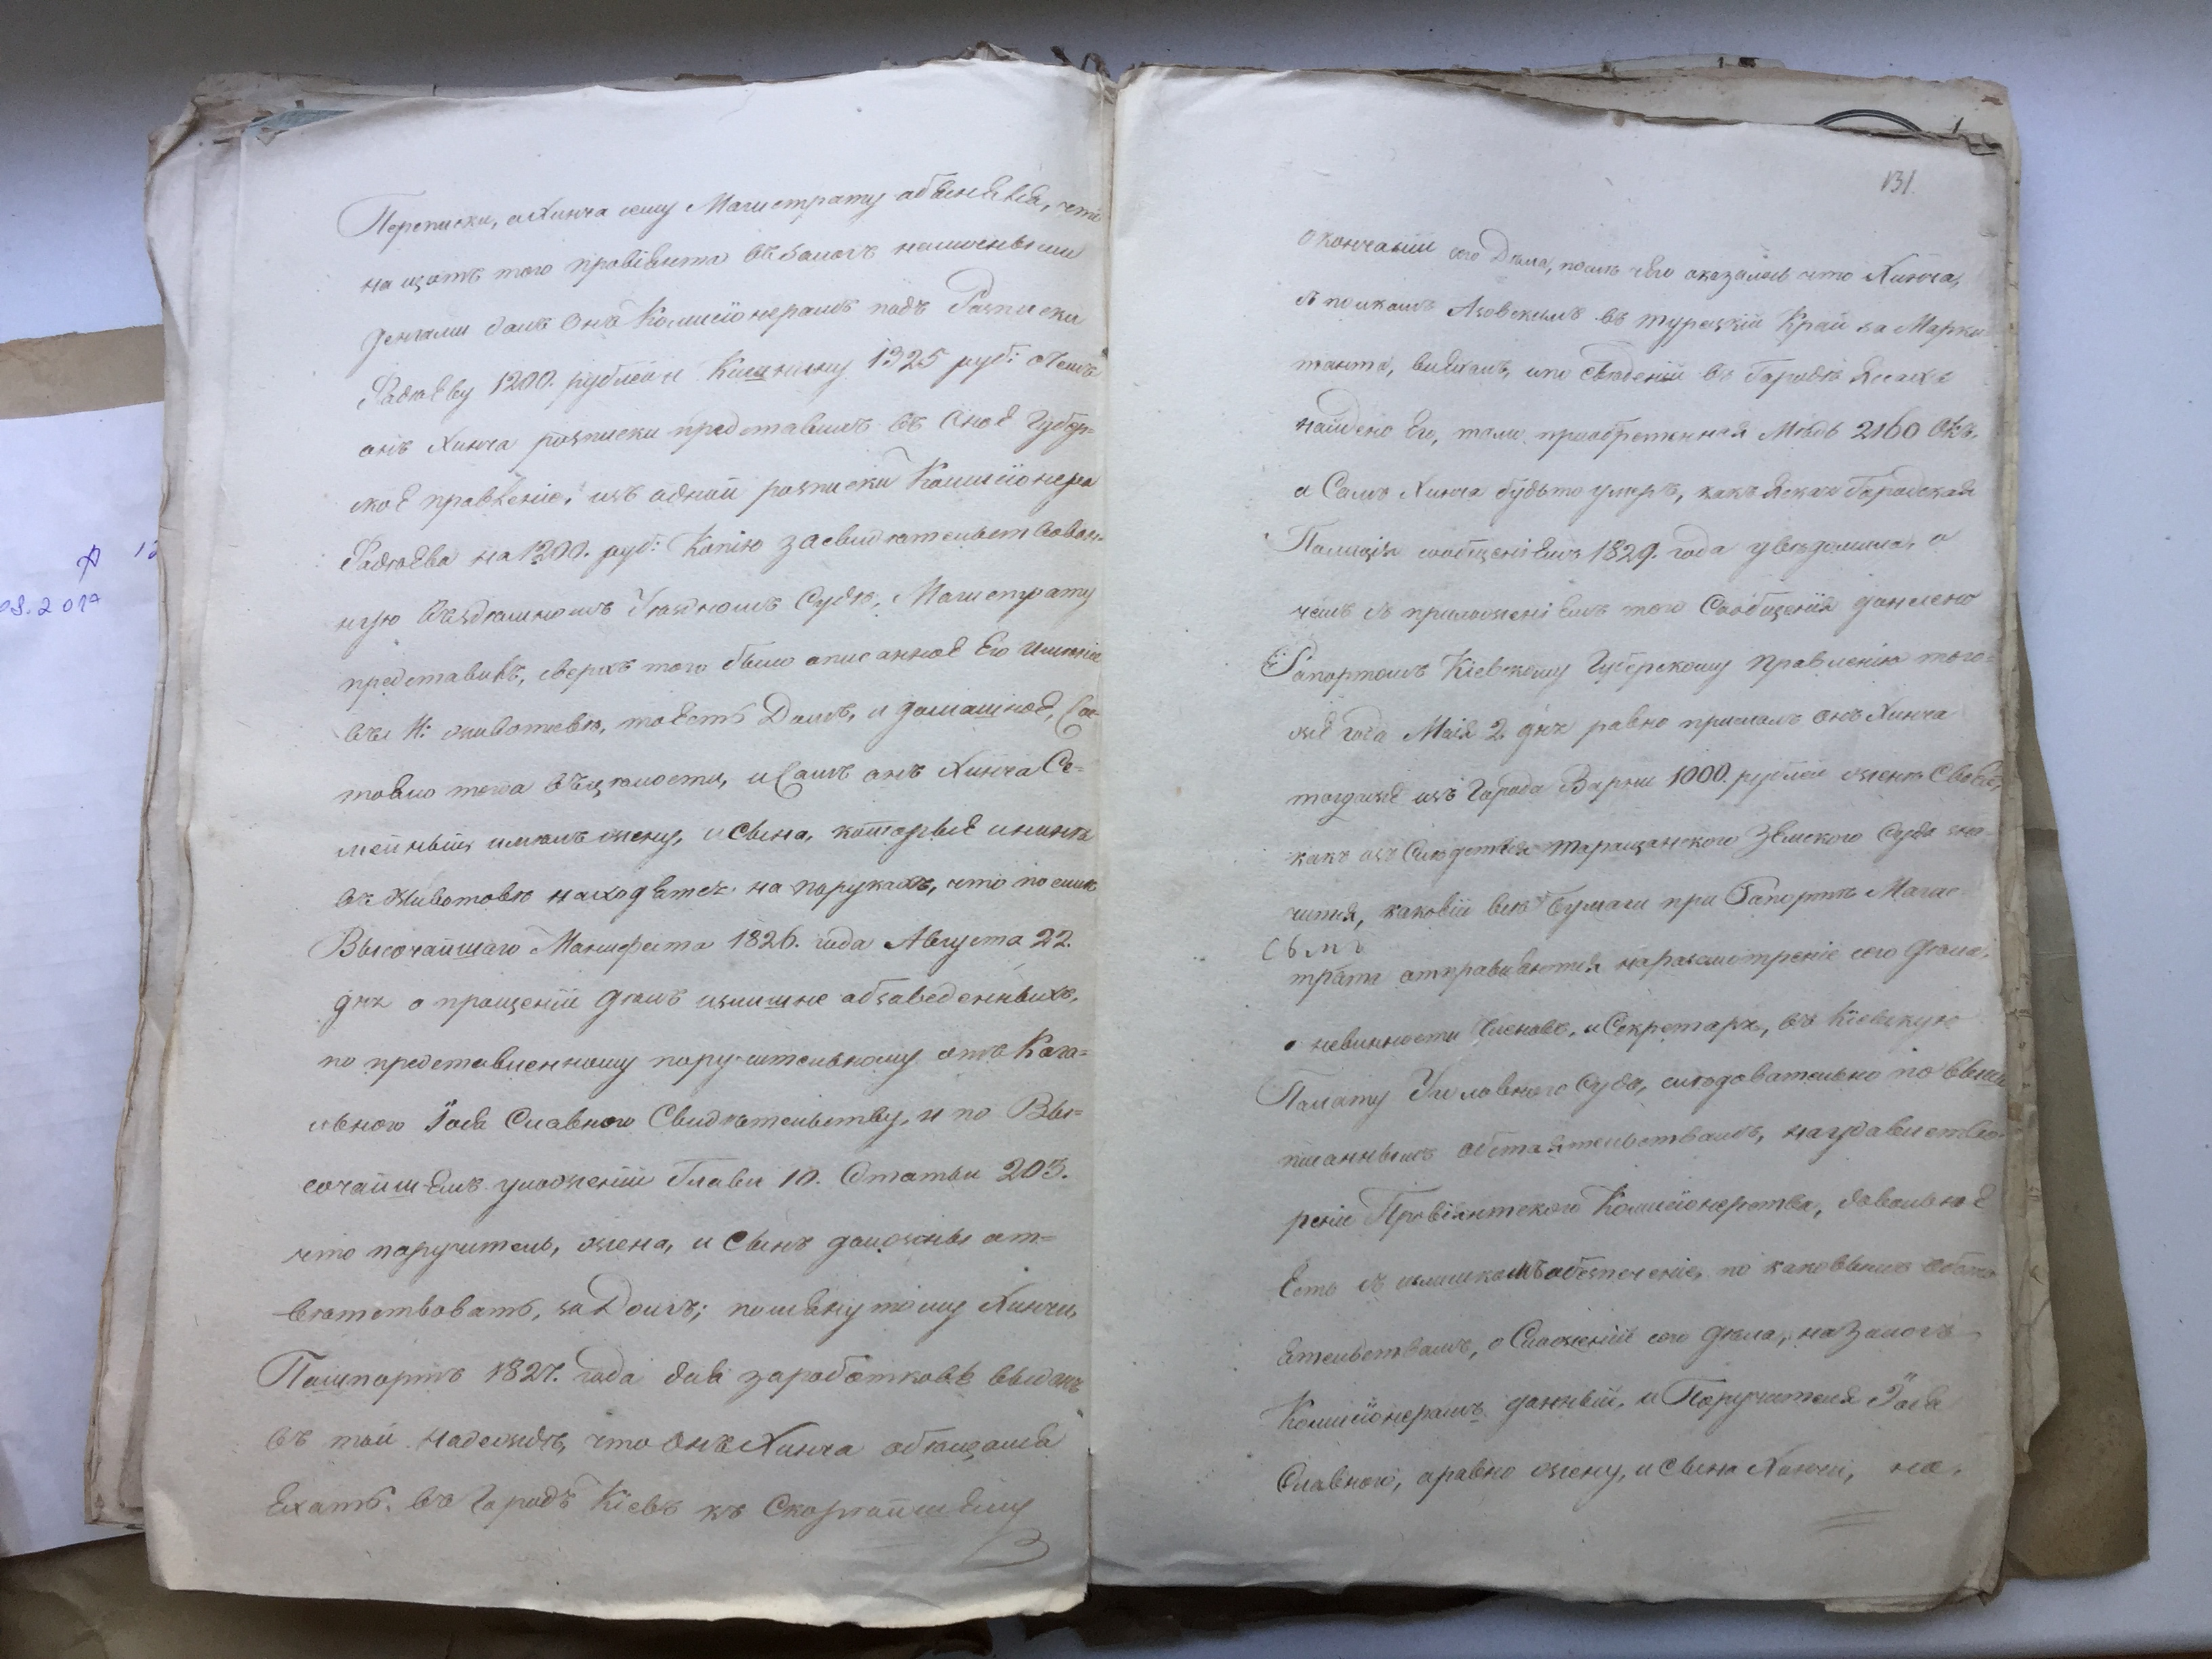 Переписки, а Хинча сему Магистрату объявлялъ, что
на щотъ того провіянта въ залогъ наличными
денгами далъ Онъ Комисіонерамъ подъ Росписки
Фадѣеву 1200. рублей и Кишкину 1325 руб: о чемъ
онъ Хинча розписки представилъ въ оное Губер-
ское правленіе, изъ одной розписки Комисіонера
Фадѣева на 1200. руб: Копію засвидѣтельствован-
ную въ Уѣздномъ Судѣ, Магистрату
представилъ, сверхъ того было описанное Его имѣніе
въ М: животовѣ, тоесть Домъ, и домашное, со-
товло тогда въ цѣлости, и Самъ онъ Хинча Се-
мейный имѣлъ жену, и сына, которые и нынѣ
въ Животовѣ находятся на порукахъ, что по силѣ
Высочайшаго Манифеста 1826. года Августа 22.
дня о прощеніи дѣлъ излишне обзаведенныхъ,
по представленному поручительному отъ Кага-
льного Іося Славного Свидѣтельству, и по Вы-
сочайшемъ уложеніи Главы 10. Статьи 203.
что поручитель, жена, и сынъ должны от-
вѣтствовать, за Долгъ; помянутому Хинчи,
Пашпортъ 1827. года для заработковъ выданъ
въ той надеждѣ, что онъ Хинча обѣщался
Ехать въ Городъ Кіевъ къ Скорѣйшему
131.
окончаніи сего Дѣла, послѣ чего оказалось что Хинча,
съ полкомъ Азовскимъ въ турецкій Край за Марки-
танта, виѣхалъ, и по свѣденіи въ Городѣ Яссахъ
найдено Его, тамъ приобретенная Мѣдь 2160 Окъ,
а Самъ Хинча будьто умеръ, какъ Яская Городская
Полиція сообщеніемъ 1829. года увѣдомила, о
чемъ съ приложеніемъ того Сообщенія донесено
Рапортомъ Кіевскому Губерскому правленію того-
же года Маія 2 дня равно присылалъ онъ Хинча
тогдаже изъ Города Варны 1000. рублей женѣ своей,
какъ изъ Слѣдствія таращанского Земского Суда зна-
чится, каковіи всѣ бумаги при Рапортѣ Магис-
симъ
трата отправляются на разсмотреніе сего дѣла,
о невинности Членовъ, и Секретаря, въ Кіевскую
Палату Уголовного Суда, слѣдовательно по выше
писаннымъ обстаятельствамъ, на удовлетво-
реніе Провіянтского Комисіонерства, довольное
Есть съ излишкомъ обезпеченіе, по каковымъ обсто-
ятельствамъ, о Сложеніи сего дѣла, на Залогъ
Комисіонерамъ данный, и Поручителя Іося
Славного, а равно жену, и сына Хинчи, не,